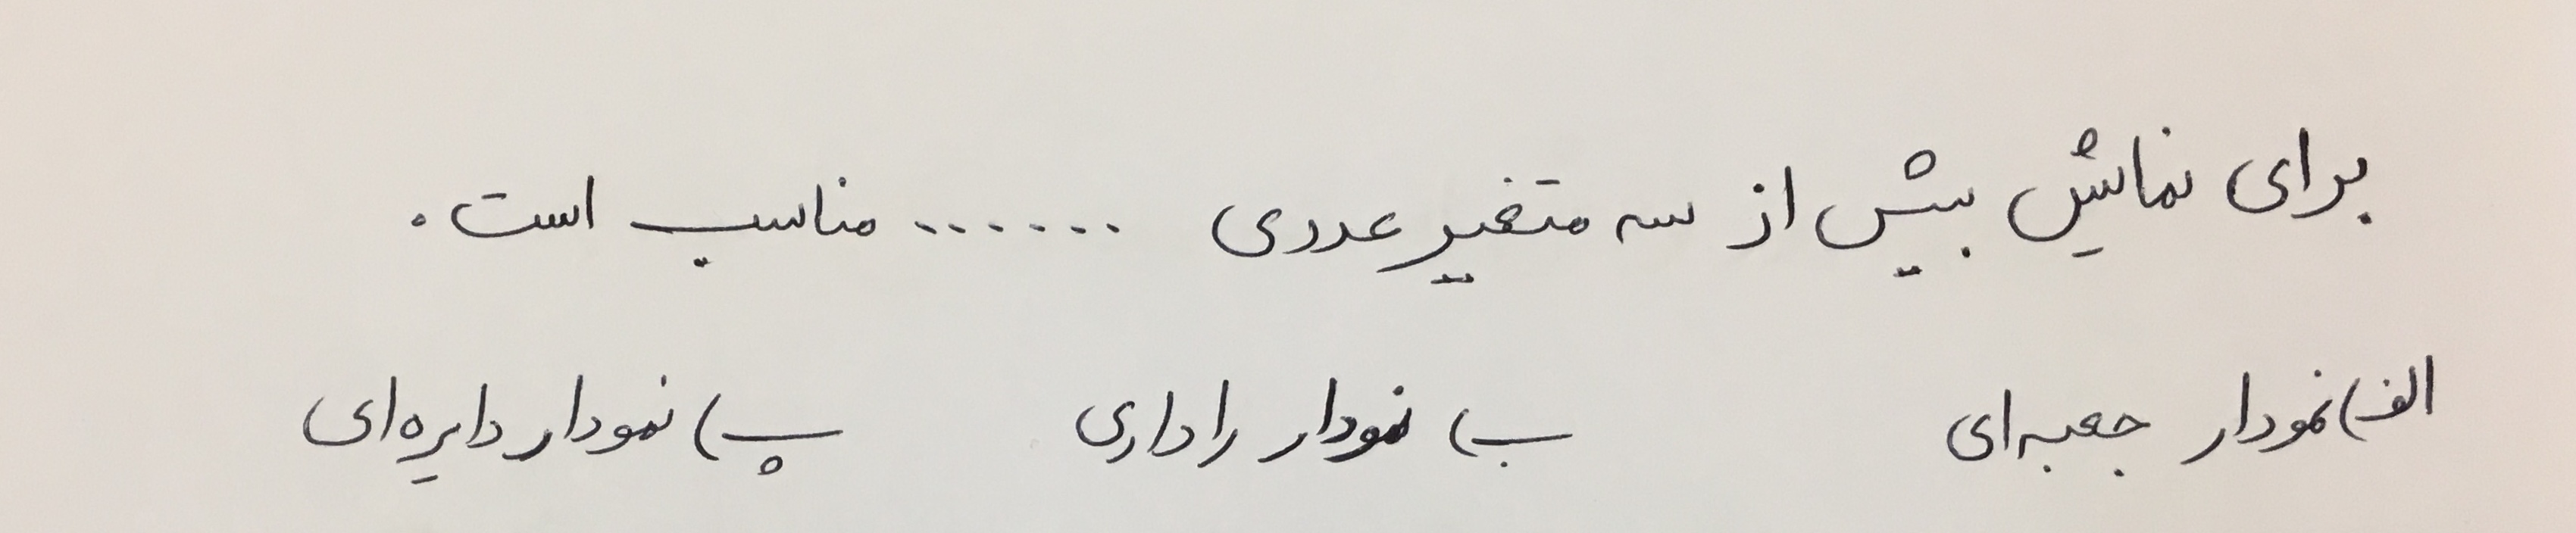 برای نمایش بیش از سه متغیر عددی ...... مناسب است.
الف) نمودار جعبه‌ای ب) نمودار راداری پ) نمودار دایره‌ای